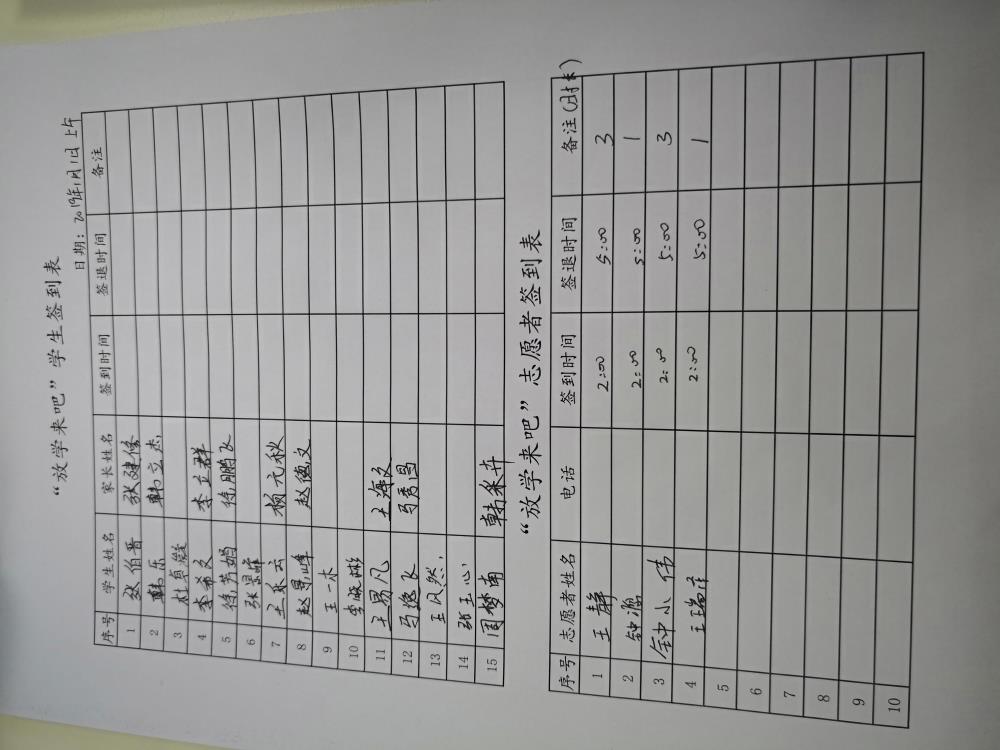 “放学来吧”学生签到表
日期：2019年1月1日上午
序号 学生姓名 家长姓名 签到时间 签退时间 备注
1 赵伯晋 张建修
2 韩乐 韩立杰
3 杜卓凝
4 李希文 李立群
5 徐芳娟 徐鹏飞
6 张昱雅
7 王乐云 杨元秋
8 赵昱峰 赵德文
9 王一木
10 李皈彬
11 王易凡 王海文
12 马逸飞 马秀国
13 王冈然
14 张玉心
15 周梦南 韩采卉
“放学来吧”志愿者签到表
序号 志愿者姓名 电话 签到时间 签退时间 备注(时长)
1 王静 2:00 5:00 3
2 钟灏 2:00 5:00 1
3 钟小伟 2:00 5:00 3
4 王瑞 2:00 5:00 1
5
6
7
8
9
10